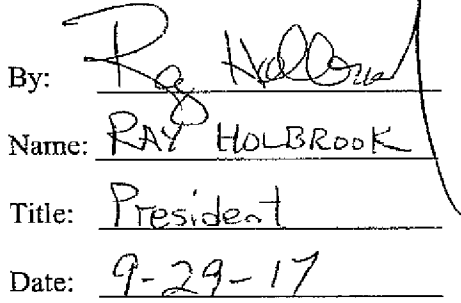 By: Ray Holbrook
Name: RAY HOLBROOK
Title: President
Date: 9-29-17